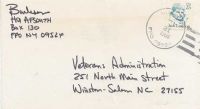 Burleson
HQ AFSOUTH
BOX 130
FPO NY 09524
Veterans Administration
251 North Main Street
Winston-Salem NC 27155